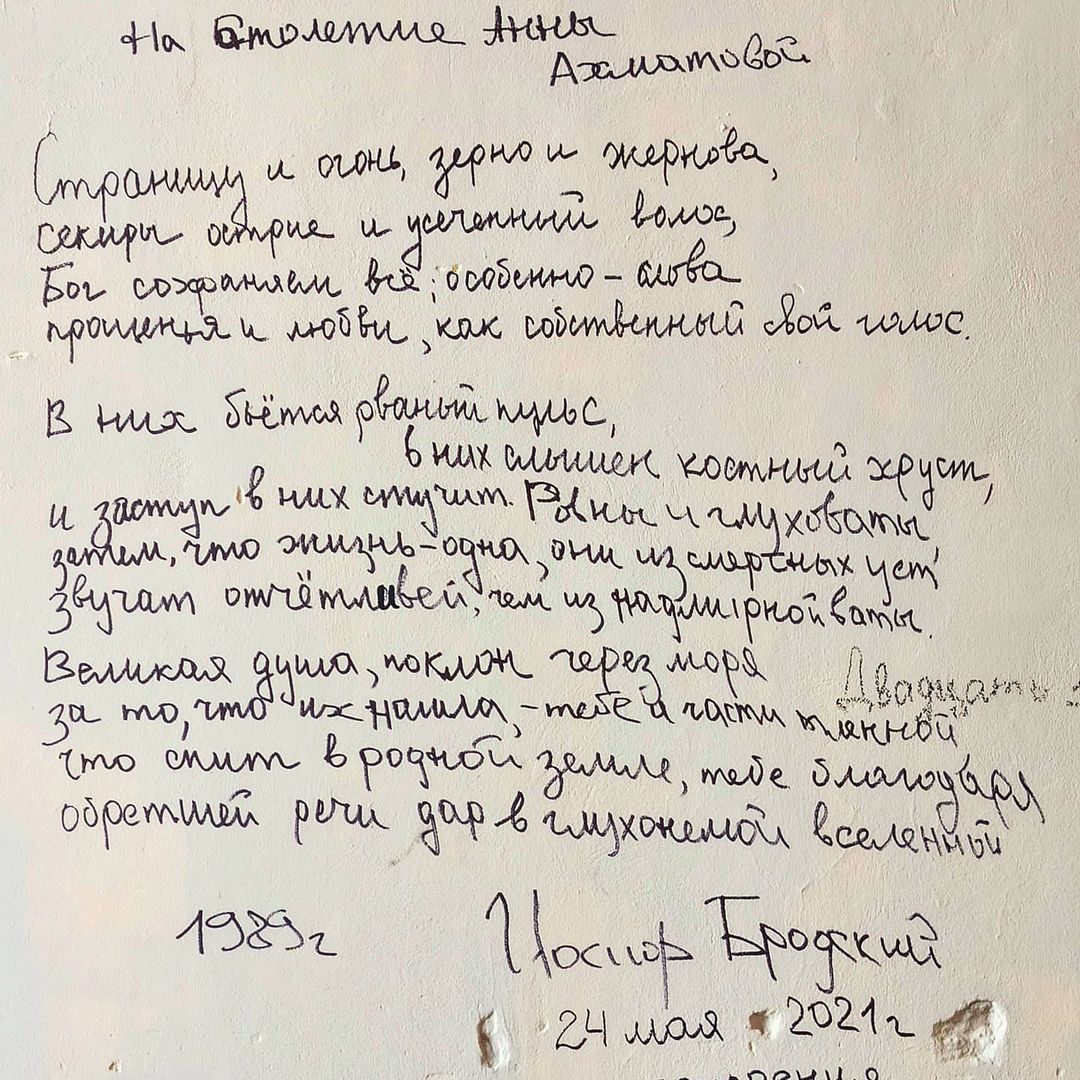 На столетие Анны
Ахматовой
Страницу и огонь, зерно и жернова,
секиры острие и усеченный волос,
Бог сохраняет всё; особенно – слова
прощенья и любви, как собственный свой голос.
В них бьётся рваный пульс,
в них слышен костный хруст,
и заступ в них стучит. Ровны и глуховаты,
затем, что жизнь – одна, они из смертных уст
звучат отчётливей, чем из надмирной ваты.
Великая душа, поклон через моря
за то, что их нашла, – тебе и части тленной
Двадцать
что спит в родной земле, тебе благодаря
обретшей речи дар в глухонемой вселенной
1989г
Иосиф Бродский
24 мая 2021г